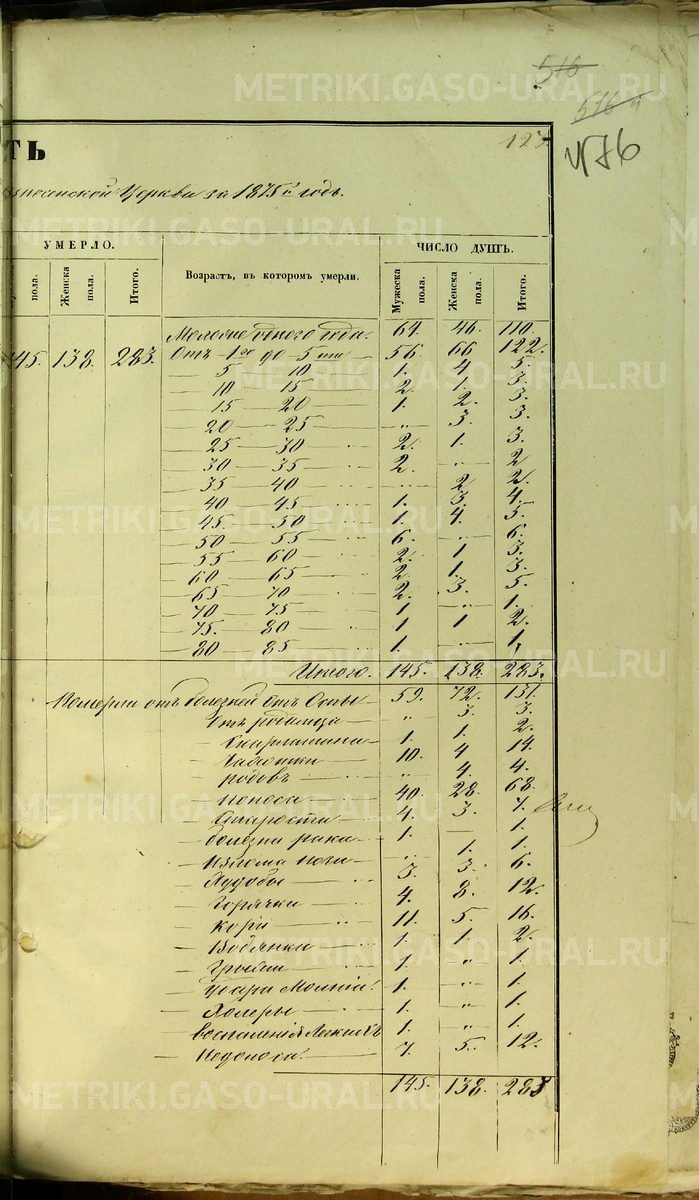 516
516 а
476
123
ТЬ
Вознесенской Церкви за 1875й годъ.
УМЕРЛО.
Возрастъ, въ которомъ умерли.
ЧИСЛО ДУШЪ.
пола. Женска пола. Итого. Мужеска пола. Женска пола. Итого.
145. 138. 283.
Моложе одного года. 64. 46. 110.
Отъ 1го до 5ти 56. 66 122.
5 — 10 1. 4 5.
10 — 15 2. 1. 3.
15 — 20 1. 2. 3.
20 — 25 „ 3. 3.
25 — 30 2. 1. 3.
30 — 35 2. „ 2
35 — 40 „ 2 2.
40 — 45 1. 3. 4.
45. — 50 1. 4. 5.
50 — 55 6. „ 6.
55 — 60 2. 1 3.
60 — 65 2. 1. 3.
65 — 70 2. 3. 5.
70 — 75 1 „ 1.
75. — 80 1 1 2.
80 — 85 1. „ 1.
Итого. 145. 138. 283.
Померли отъ болезней отъ Оспы 59. 72. 131.
Отъ родимца „ 3. 3.
Скарлатина 1. 1. 2.
10. 4 14.
родовъ „ 4. 4.
поноса 40. 28. 68.
Старости 4. 3. 7.
болезни рака 1. — 1.
ноги „ 1. 1.
Худобы 3. 3. 6.
Горячки 4. 8. 12.
Кори 11. 5. 16.
Водянки 1. 1. 2.
1. „ 1.
Удара Молніи. 1. „ 1.
Холеры 1. „ 1.
воспаленія Легкихъ 1. „ 1.
7. 5. 12.
145. 138. 283
METRIKI.GASO-URAL.RU
METRIKI.GASO-URAL.RU
METRIKI.GASO-URAL.RU
METRIKI.GASO-URAL.RU
METRIKI.GASO-URAL.RU
METRIKI.GASO-URAL.RU
METRIKI.GASO-URAL.RU
METRIKI.GASO-URAL.RU